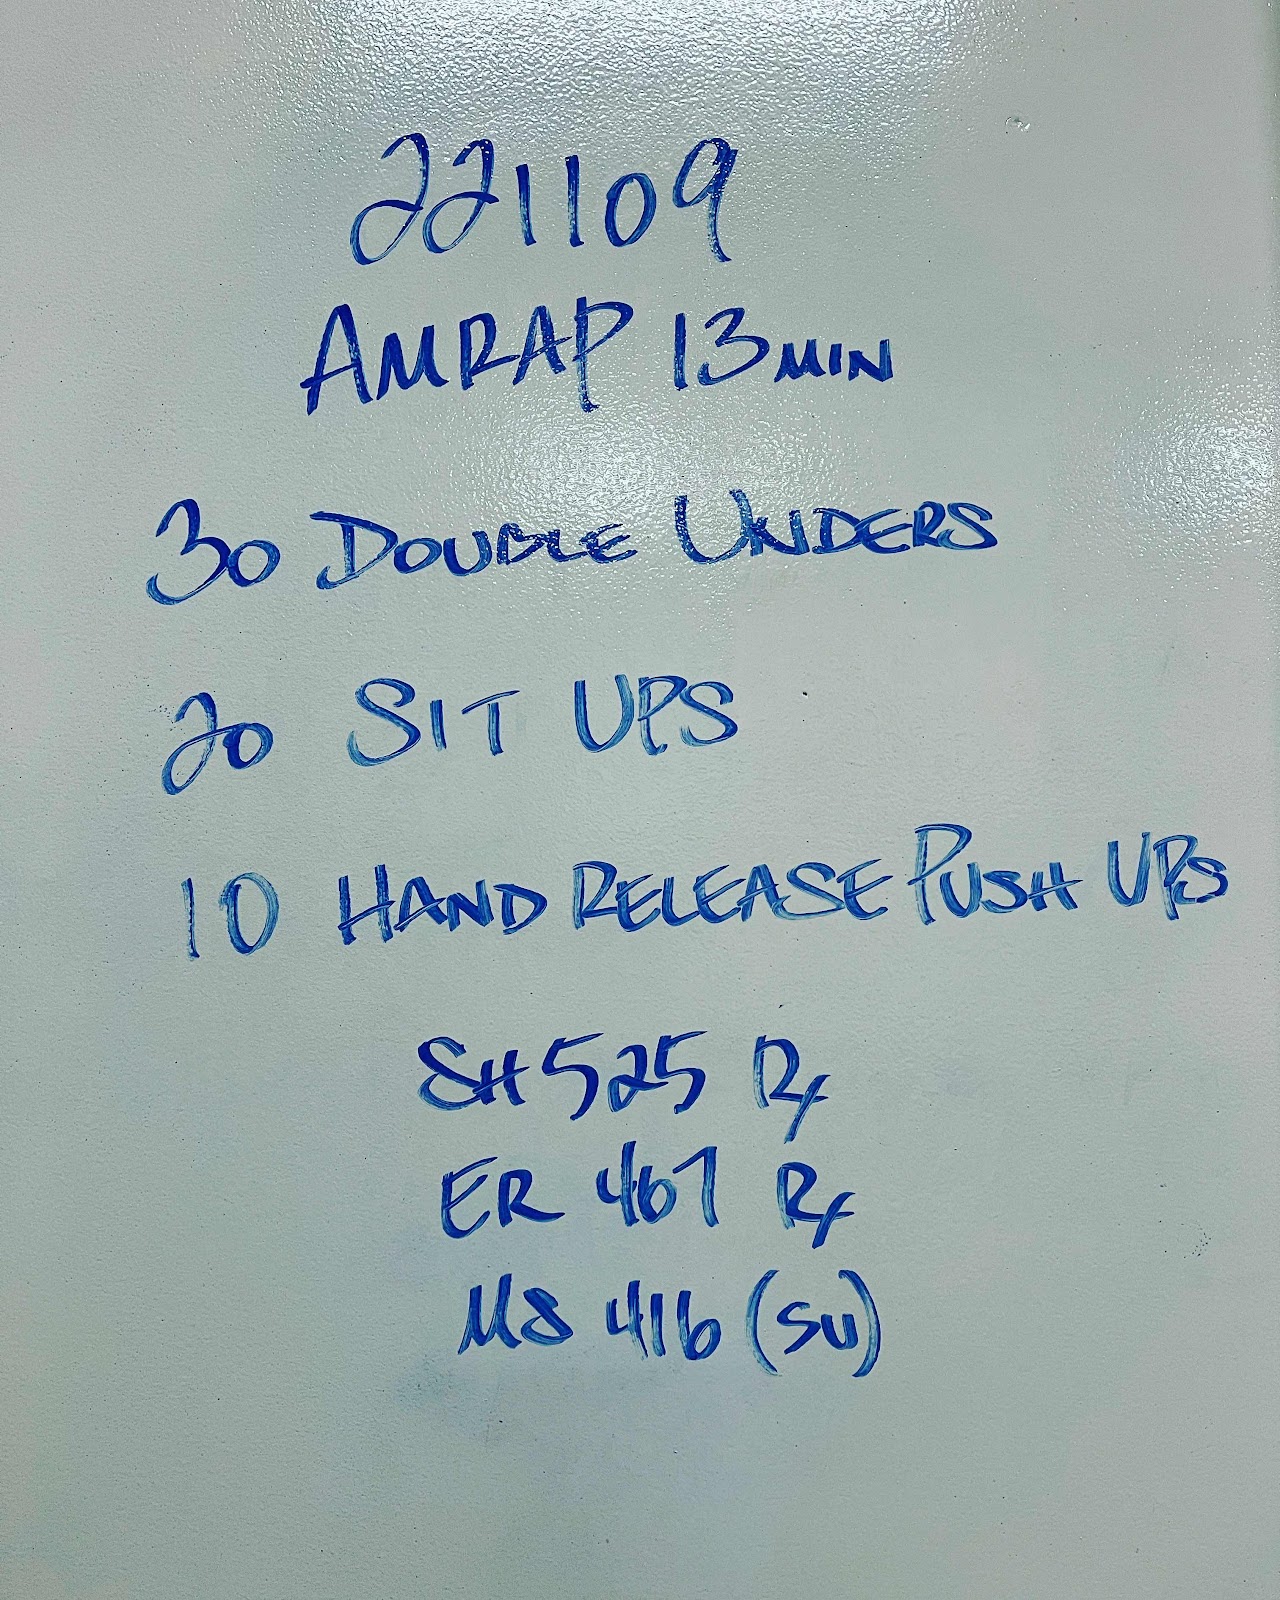 221109
AMRAP 13 MIN
30 DOUBLE UNDERS
20 SIT UPS
10 HAND RELEASE PUSH UPS
SH 525 Rx
ER 467 Rx
MS 416 (SU)